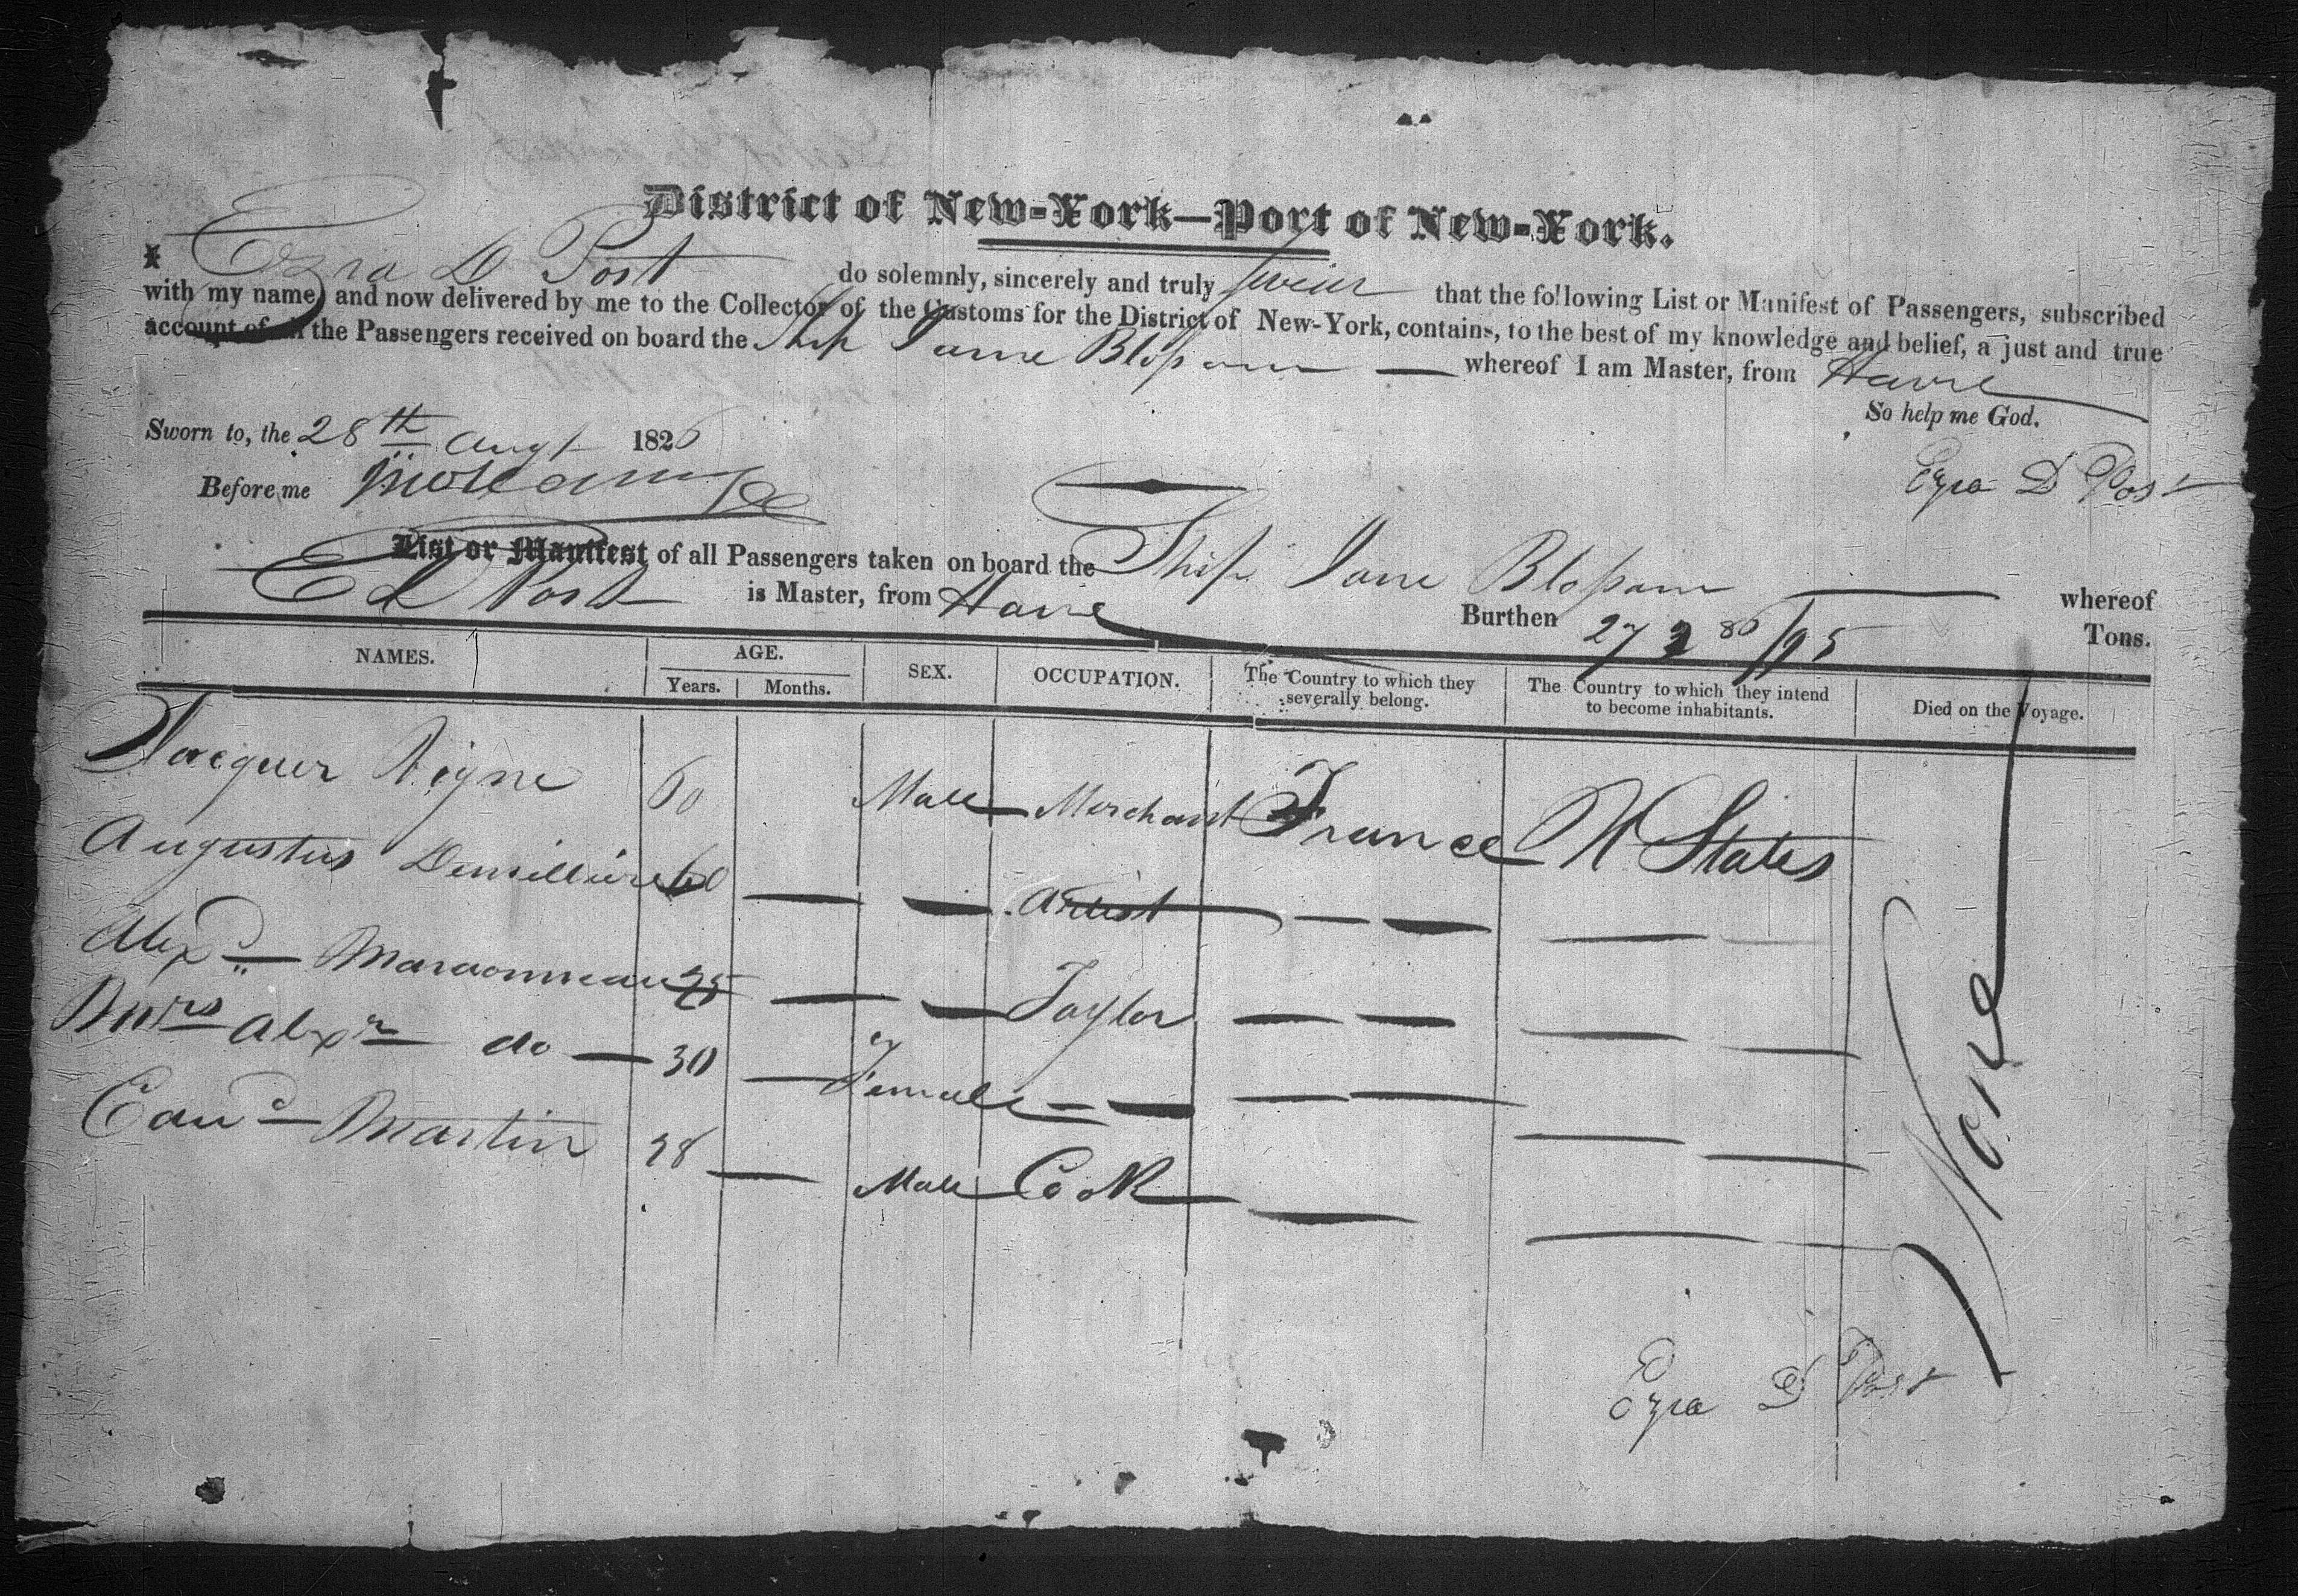 District of New-York—Port of New-York.
I Ezra D Post do solemnly, sincerely and truly swear that the following List or Manifest of Passengers, subscribed
with my name, and now delivered by me to the Collector of the Customs for the District of New-York, contains, to the best of my knowledge and belief, a just and true
account of all the Passengers received on board the Ship Jane Blossom whereof I am Master, from Havre
So help me God.
Sworn to, the 28th Augt 1826
Ezra D Post
Before me
List or Manifest of all Passengers taken on board the Ship Jane Blossom whereof
E D Post is Master, from Havre Burthen 273 86/95 Tons.
NAMES. AGE. Years. Months. SEX. OCCUPATION. The Country to which they severally belong. The Country to which they intend to become inhabitants. Died on the Voyage.
Jacques Vigne 60 Male Merchant France U States
Augustus 60 — — Artist — — — —
Alexd Maraonneau 25 — — Taylor — — — —
Mrs Alexr do — 30 — Female — — — — — —
Edwd Martin 28 — Male Cook — — —
None
Ezra D Post